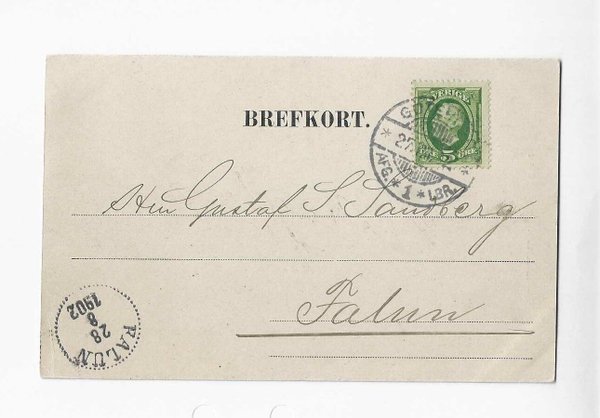 SVERIGE
5
ÖRE
BREFKORT.
27
AFG. * 1 * LBR.
Herr Gustaf S. Sandberg
Falun
FALUN
28
8
1902